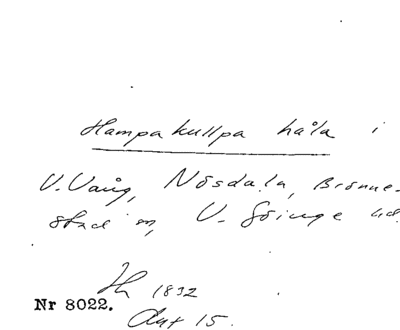 Hampakullpa håla i
V. Vång, Nösdala, Brönne-
stad sn, V. Göinge hd.
1892
Nr 8022.
15.